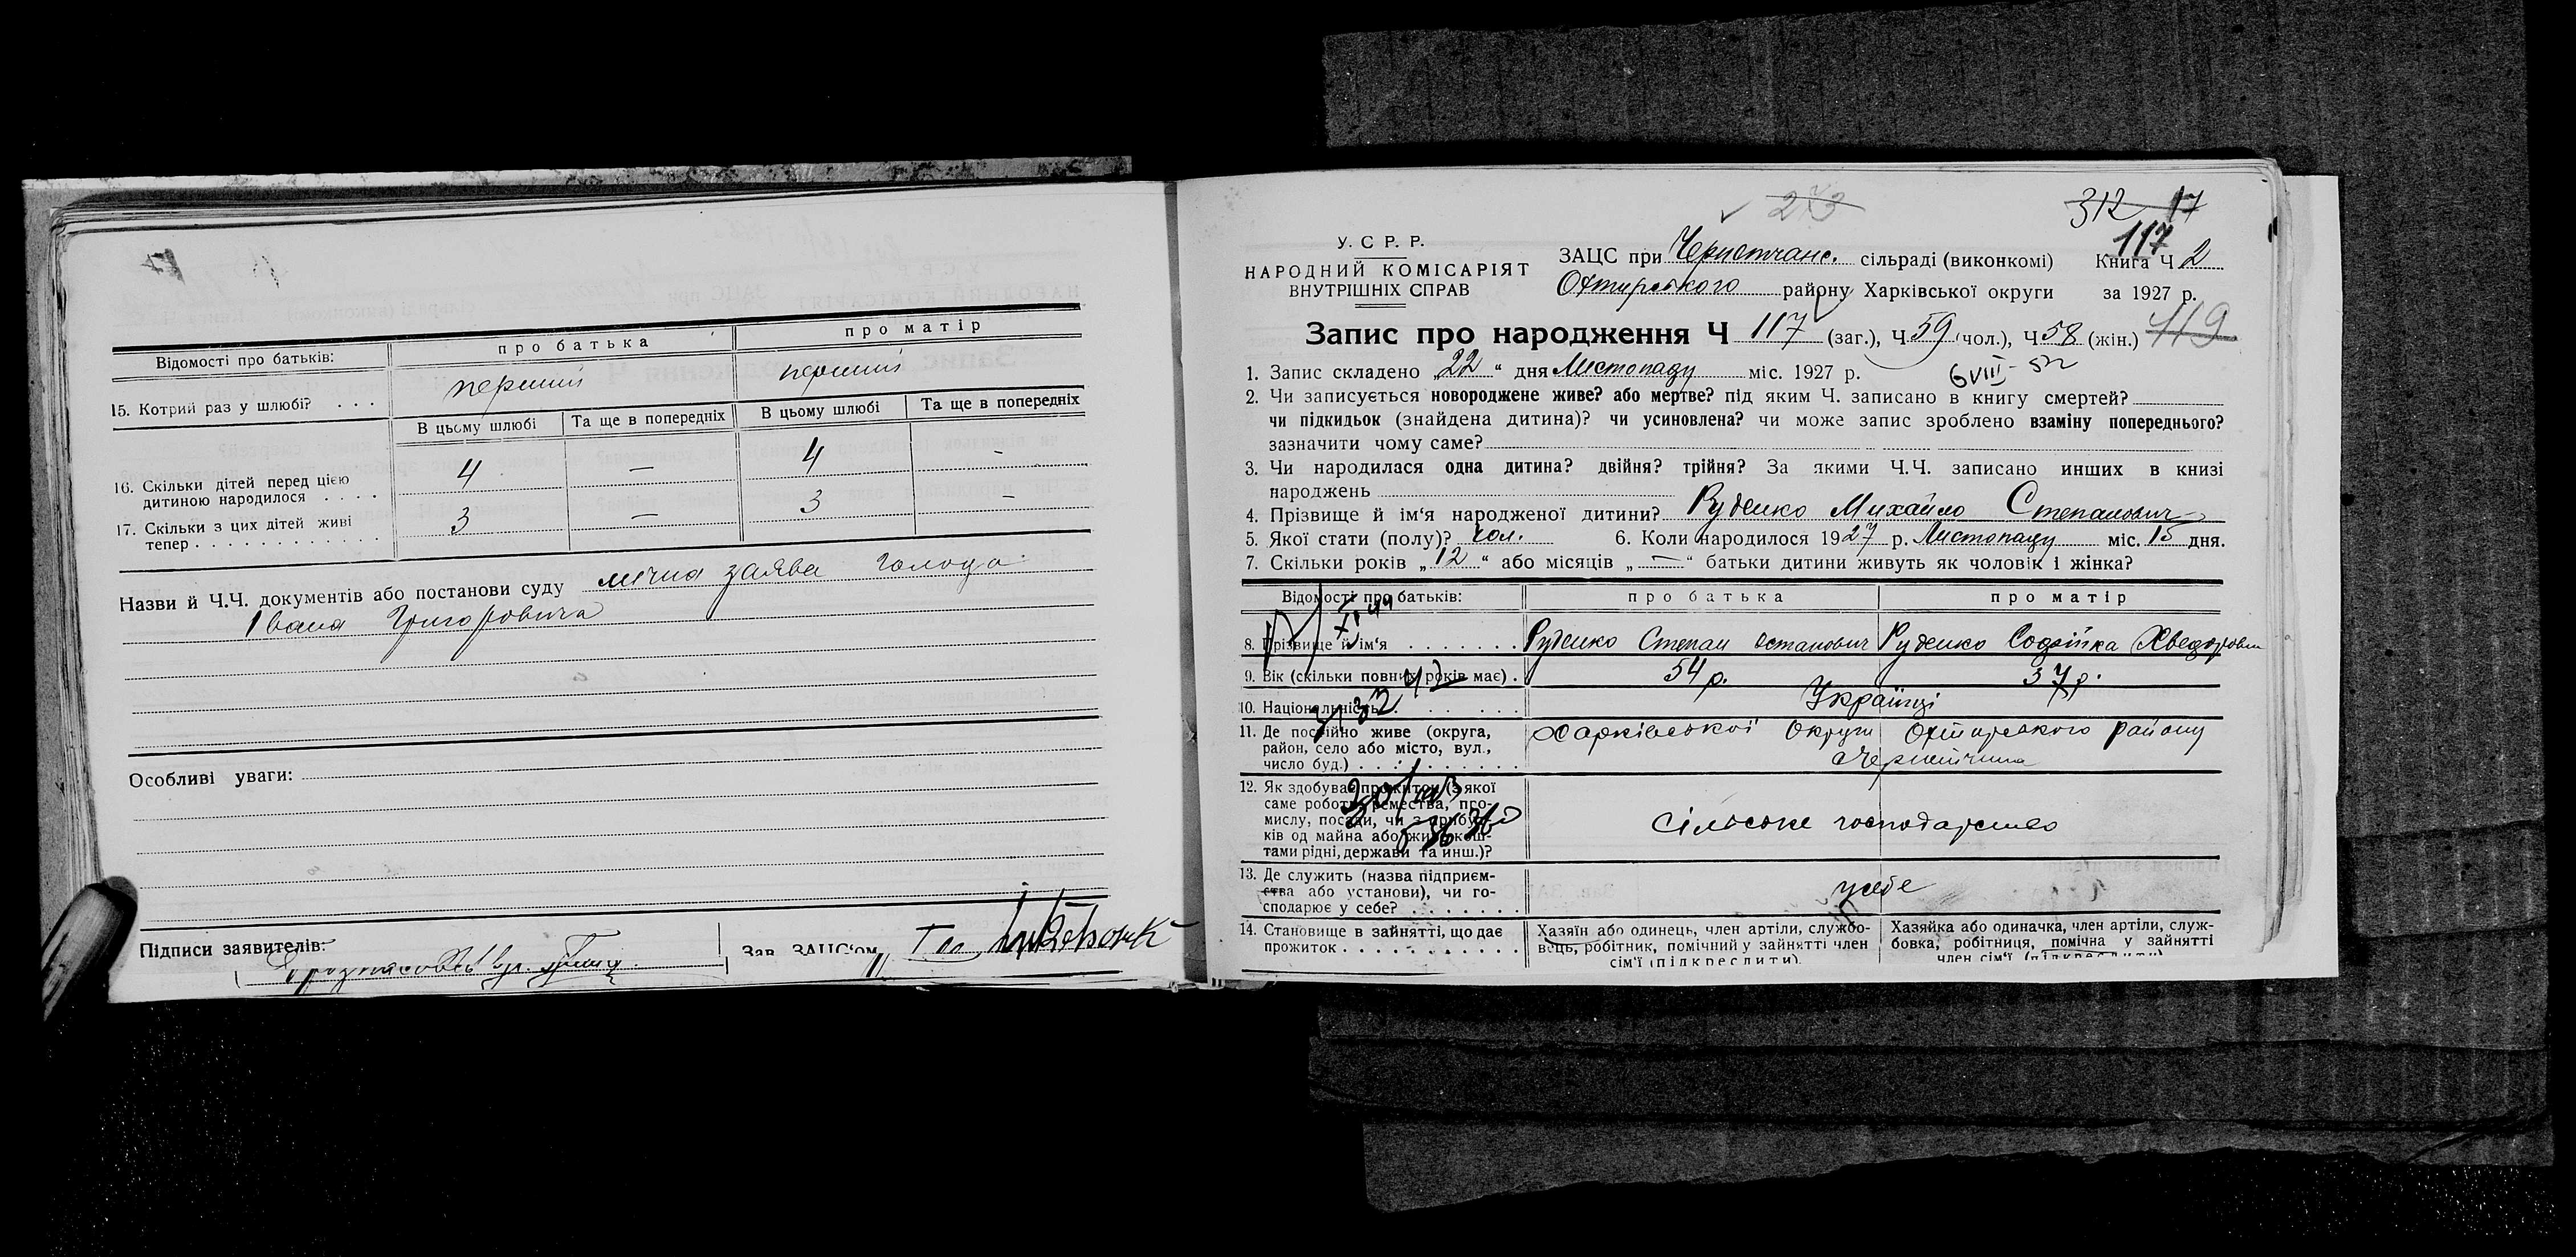 Відомості про батьків:
про батька
про матір
15. Котрий раз у шлюбі? . . .
перший
перший
В цьому шлюбі
Та ще в попередніх
В цьому шлюбі
Та ще в попередніх
16. Скільки дітей перед цією
дитиною народилося . . . .
4
—
4
-
17. Скільки з цих дітей живі
тепер . . . . . . . . . . . . .
3
—
3
-
Назви й Ч.Ч. документів або постанови суду
заява
Івана Григоровича
Особливі уваги:
Підписи заявителів:
Зав. ЗАЦС'ом
273
312 17
117
У. С Р. Р.
НАРОДНИЙ КОМІСАРІЯТ
ВНУТРІШНІХ СПРАВ
ЗАЦС при Чернетчанс. сільраді (виконкомі) Книга Ч 2
Охтирського району Харківської округи за 1927 р.
Запис про народження Ч 117 (заг.), Ч 59 (чол.), Ч 58 (жін.) 119
1. Запис складено „22“ дня Листопаду міс. 1927 р.
6 VIII - 52
2. Чи записується новороджене живе? або мертве? під яким Ч. записано в книгу смертей?
чи підкидьок (знайдена дитина)? чи усиновлена? чи може запис зроблено взаміну попереднього?
зазначити чому саме?
3. Чи народилася одна дитина? двійня? трійня? За якими Ч.Ч. записано инших в книзі
народжень
4. Прізвище й ім'я народженої дитини? Руденко Михайло Степанович
5. Якої стати (полу)? чол. 6. Коли народилося 1927 р. Листопаду міс. 15 дня.
7. Скільки років „12“ або місяців „—“ батьки дитини живуть як чоловік і жінка?
Відомості про батьків:
про батька
про матір
8. Прізвище й ім'я . . . . . . .
Руденко Степан Остапович
Руденко
9. Вік (скільки повних років має) .
54 р.
37 р.
10. Національність . . . . . . .
Українці
11. Де постійно живе (округа,
район, село або місто, вул.,
число буд.) . . . . . . . . . .
Харківської Округи Охтирського району
Чернетчина
12. Як здобуває прожиток (з якої
саме роботи, ремества, про-
мислу, посади, чи з прибут-
ків од майна або живе кош-
тами рідні, держави та инш.)?
Сільське господарство
13. Де служить (назва підприєм-
ства або установи), чи го-
сподарює у себе? . . . . . . .
у себе
14. Становище в зайнятті, що дає
прожиток . . . . . . . . . . .
Хазяїн або одинець, член артіли, службо-
вець, робітник, помічний у зайнятті член
сім'ї (підкреслити).
Хазяйка або одиначка, член артіли, служ-
бовка, робітниця, помічна у зайнятті
член сім'ї (підкреслити)